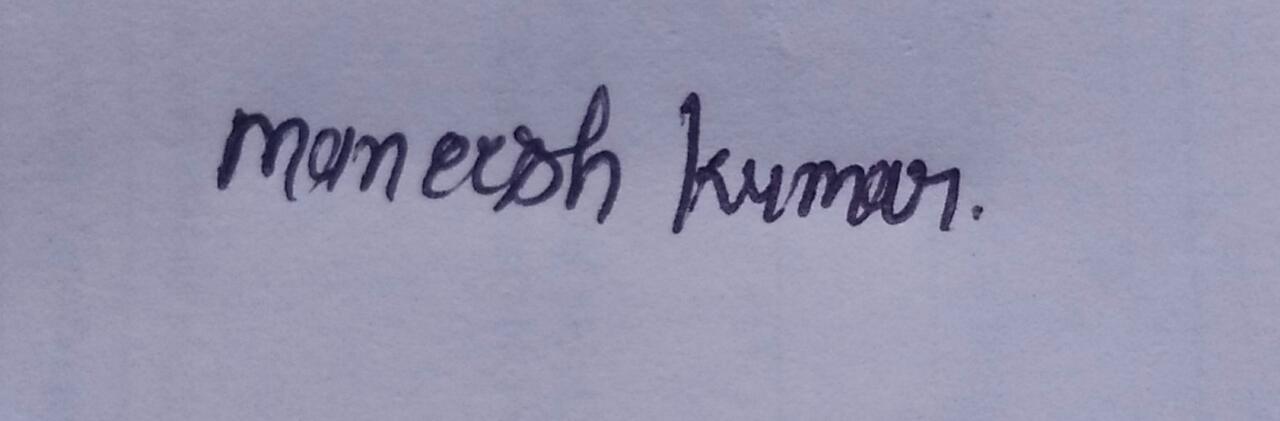 Maneesh kumar.